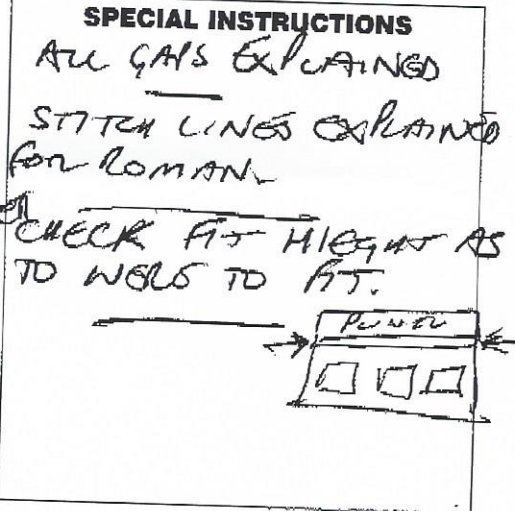 SPECIAL INSTRUCTIONS
ALL GAPS EXPLAINED
STITCH LINES EXPLAINED
FOR ROMAN.
CHECK FIT HIEGHT AS
TO WERE TO FIT.